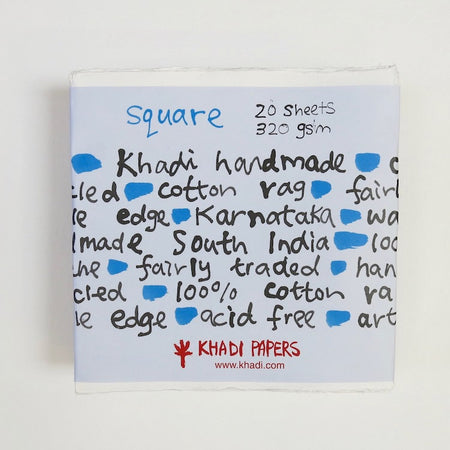 square
20 sheets
320 gsm
Khadi handmade
cotton rag fairl
edge Karnataka wa
made South India 100
fairly traded han
cled 100% cotton ra
edge acid free art
KHADI PAPERS
www.khadi.com